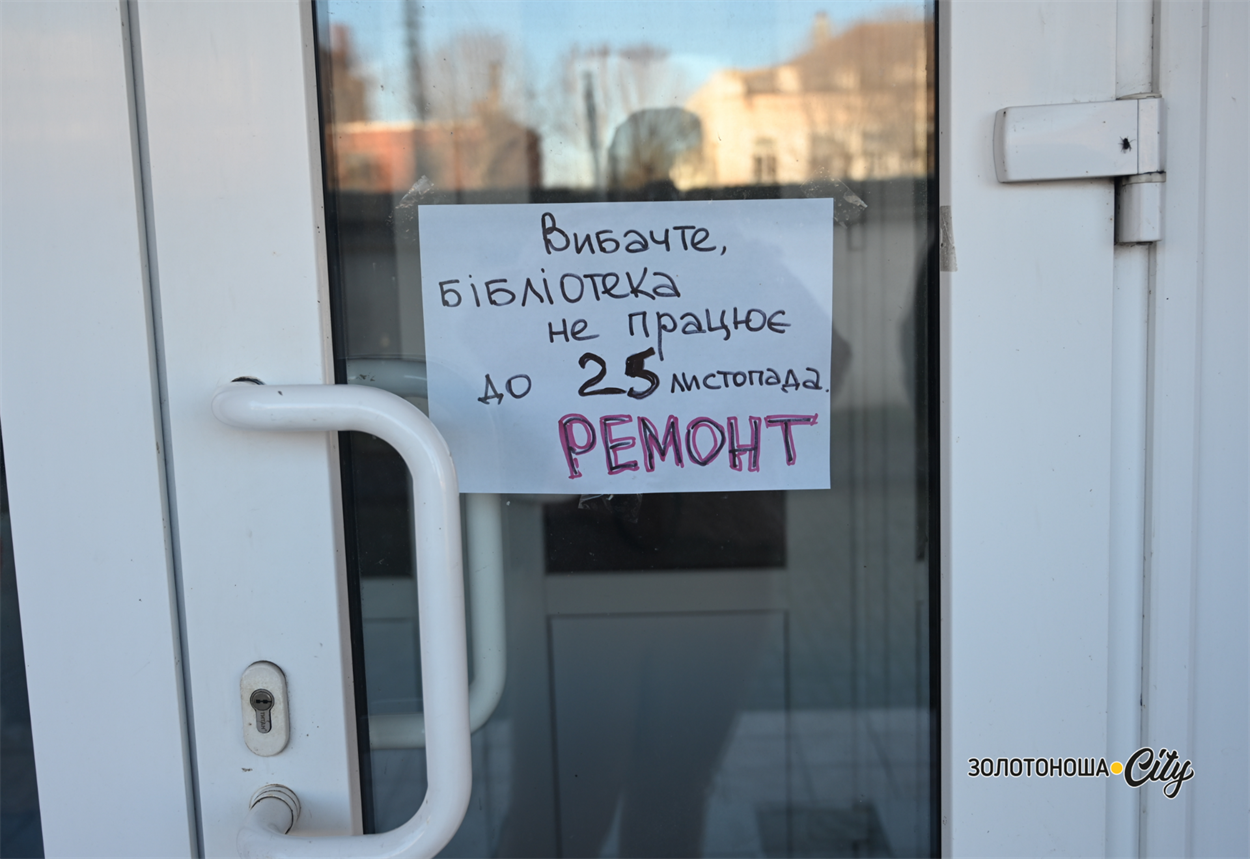 Вибачте,
бібліотека
не працює
до 25 листопада.
РЕМОНТ
ЗОЛОТОНОША City